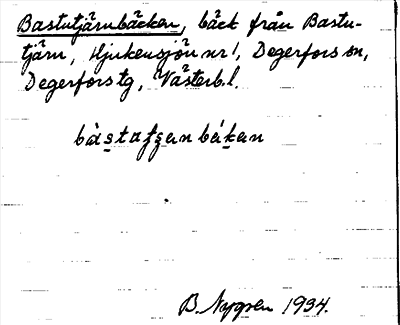 Bastutjärnbäcken, bäck från Bastu-
tjärn, Hjukensjön nr 1, Degerfors sn,
Degerfors tg, Västerb. l.
B. Nygren 1934.